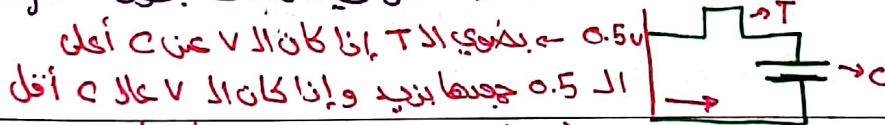 0.5v ← بضوي الـ T إذا كان الـ V عند C أعلى
الـ 0.5 جهدها بزيد وإذا كان الـ V عالـ C أقل
→ T
→ C